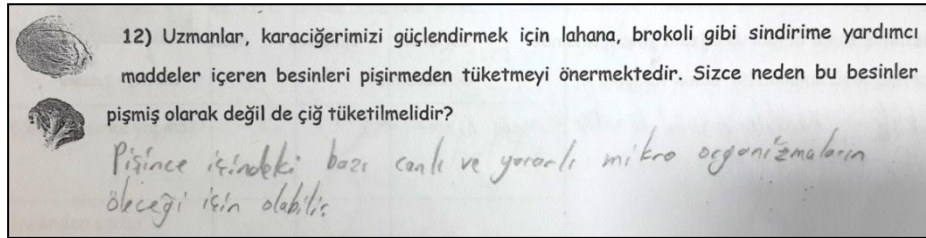 12) Uzmanlar, karaciğerimizi güçlendirmek için lahana, brokoli gibi sindirime yardımcı
maddeler içeren besinleri pişirmeden tüketmeyi önermektedir. Sizce neden bu besinler
pişmiş olarak değil de çiğ tüketilmelidir?
Pişince içindeki bazı canlı ve yararlı mikro organizmaların
öleceği için olabilir